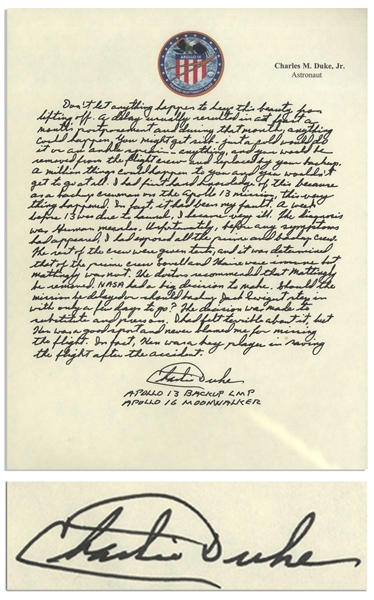 APOLLO 16
Charles M. Duke, Jr.
Astronaut
Don't let anything happen to keep this beauty from
lifting off. A delay usually resulted in at least a
month's postponement and during that month, anything
could happen. You might get sick. Just a cold would do
it or an ankle sprain or anything, and you would be
removed from the flight crew and replaced by your backup.
A million things could happen to you and you wouldn't
get to go at all. I had first hand knowledge of this because
as a backup crewman on the Apollo 13 mission, this very
thing happened. In fact, it had been my fault. A week
before 13 was due to launch, I became very ill. The diagnosis
was German measles. Unfortunately, before any symptoms
had appeared, I had exposed all the prime and backup crew.
The rest of the crew were given tests, and it was determined
that of the prime crew Lovell and Haise were immune but
Mattingly was not. The doctors recommended that Mattingly
be removed. NASA had a big decision to make. Should the
mission be delayed or should backup Jack Swigert step in
with only a few days to go? The decision was made to
substitute and press on. I had felt terrible about it, but
Ken was a good sport and never blamed me for missing
the flight. In fact, Ken was a key player in saving
the flight after the accident.
Charlie Duke
APOLLO 13 BACKUP LMP
APOLLO 16 MOONWALKER
Charlie Duke